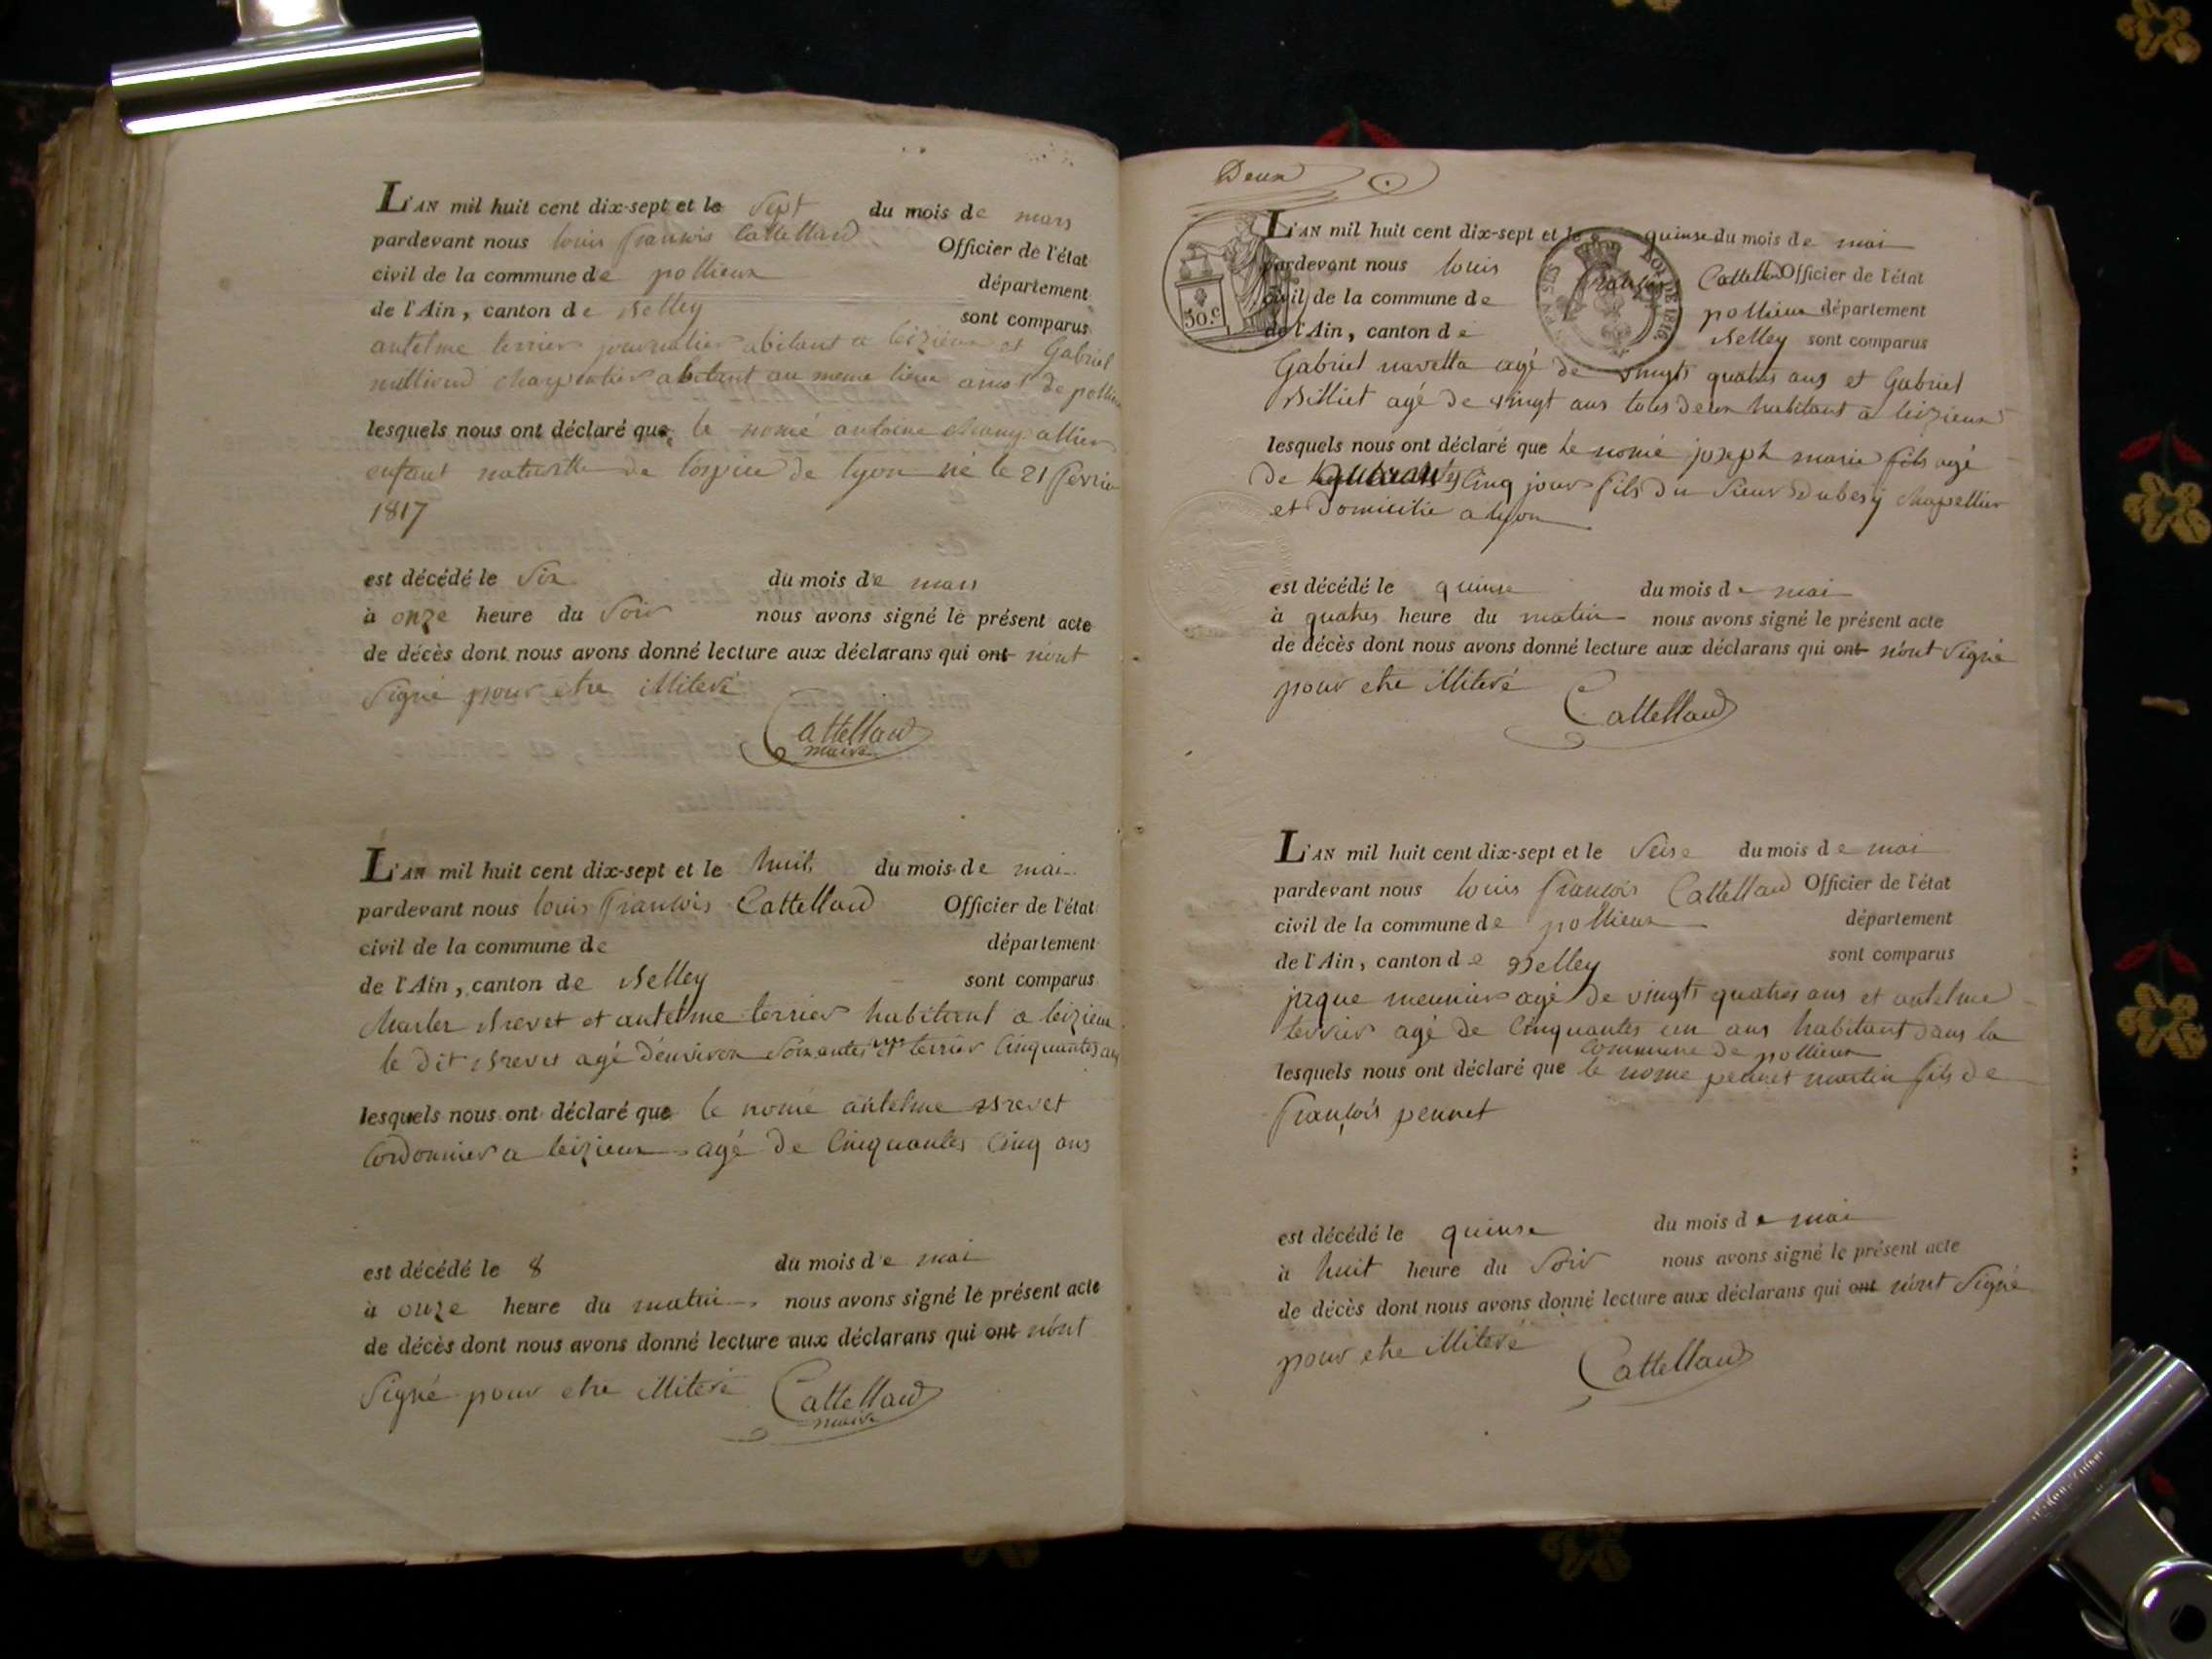 L'AN mil huit cent dix-sept et le sept du mois de mars
pardevant nous louis francois Cattelland Officier de l'état
civil de la commune de pollieux département
de l'Ain, canton de Belley sont comparus
antelme terrier journalier abitant a leizieux et Gabriel
charpentier abitant au meme lieux
lesquels nous ont déclaré que le nomé antoine
enfant naturelle de lospice de lyon né le 21 fevrier
1817
est décédé le six du mois de mars
à onze heure du soir nous avons signé le présent acte
de décès dont nous avons donné lecture aux déclarans qui ont n'ont
signé pour etre illiteré
Cattelland
maire
L'AN mil huit cent dix-sept et le huit du mois de mai
pardevant nous louis francois Cattelland Officier de l'état
civil de la commune de département
de l'Ain, canton de Belley sont comparus
Charler Brevet et antelme terrier habitant a leizieux
le dit Brevet agé d'environ soixantes et terrier Cinquantes ans
lesquels nous ont déclaré que le nomé antelme Brevet
Cordonnier a leizieux agé de Cinquantes Cinq ans
est décédé le 8 du mois de mai
à onze heure du matin nous avons signé le présent acte
de décès dont nous avons donné lecture aux déclarans qui ont n'ont
signé pour etre illiteré
Cattelland
maire
Deux
L'AN mil huit cent dix-sept et le quinse du mois de mai
pardevant nous louis françois Cattelland Officier de l'état
civil de la commune de pollieux département
de l'Ain, canton de Belley sont comparus
30.c
1816
Gabriel navetta agé de vingts quatres ans et Gabriel
Billiet agé de vingt ans tous deux habitant a leizieux
lesquels nous ont déclaré que le nomé joseph marie fils agé
de Cinq jour fils du sieur Dubesy chapellier
et domicilié a lyon
est décédé le quinse du mois de mai
à quatres heure du matin nous avons signé le présent acte
de décès dont nous avons donné lecture aux déclarans qui ont n'ont signé
pour etre illiteré
Cattelland
L'AN mil huit cent dix-sept et le seise du mois de mai
pardevant nous louis francois Cattelland Officier de l'état
civil de la commune de pollieux département
de l'Ain, canton de Belley sont comparus
jaque meunier agé de vingts quatres ans et antelme
terrier agé de Cinquantes un ans habitant dans la
commune de pollieux
lesquels nous ont déclaré que le nomé pennet martin fils de
françois pennet
est décédé le quinse du mois de mai
à huit heure du soir nous avons signé le présent acte
de décès dont nous avons donné lecture aux déclarans qui ont n'ont signé
pour etre illiteré
Cattelland